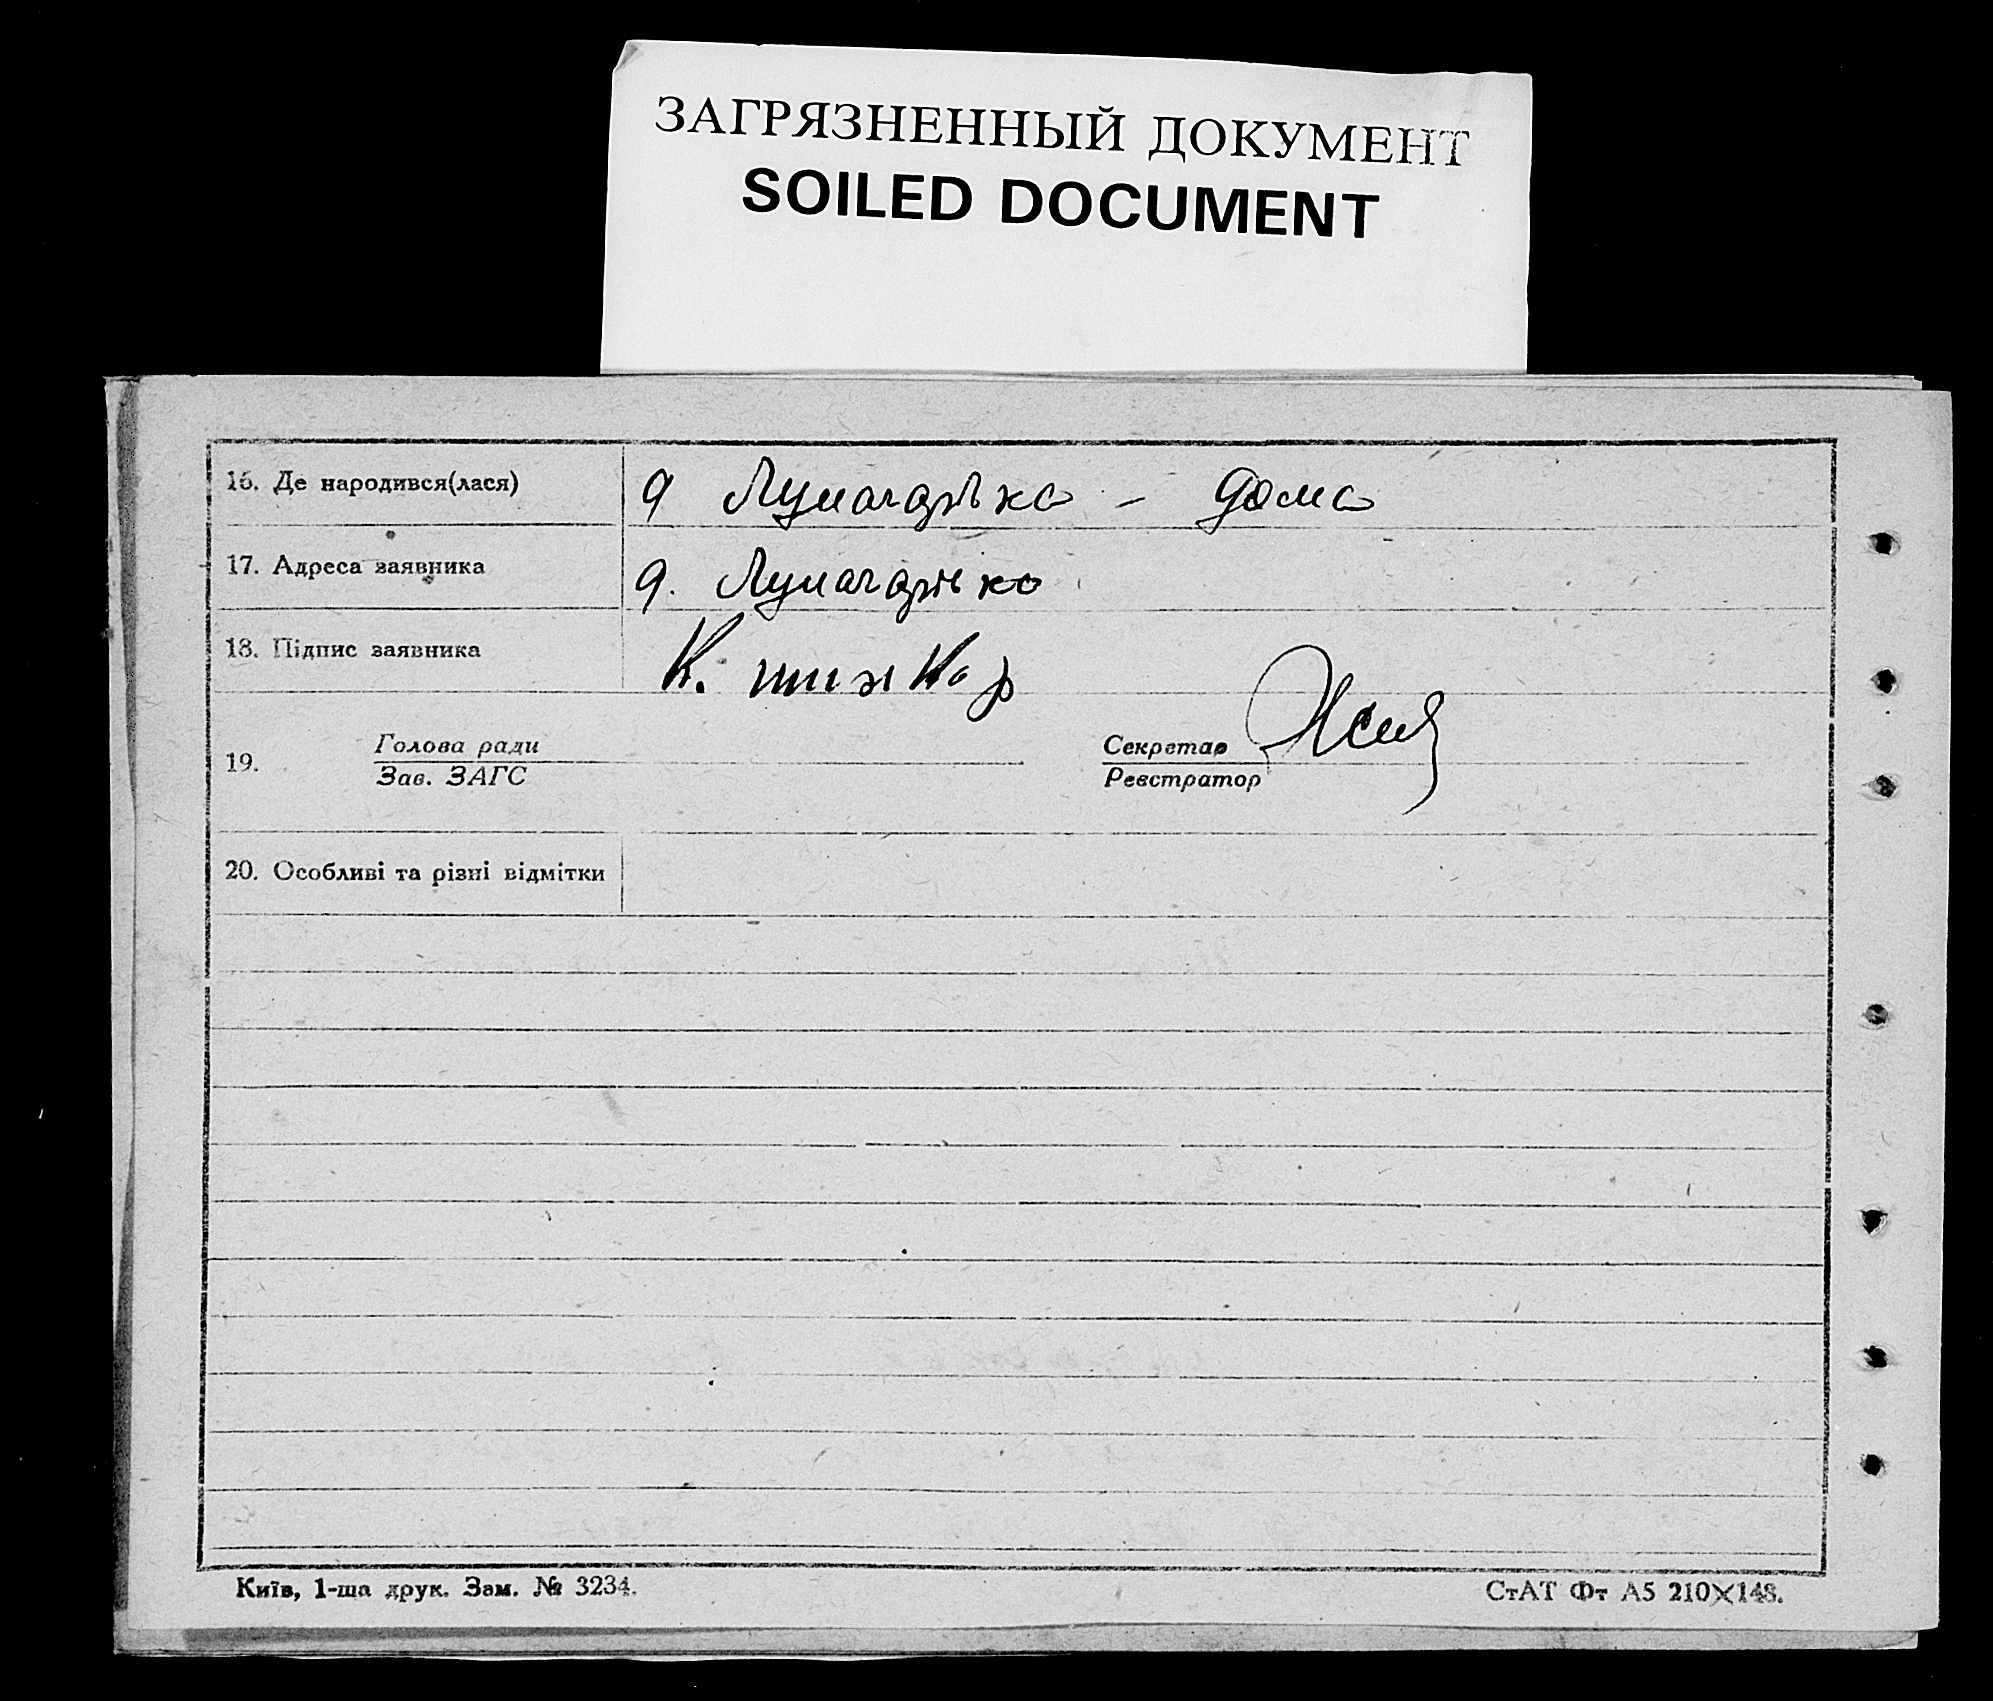 ЗАГРЯЗНЕННЫЙ ДОКУМЕНТ
SOILED DOCUMENT
16. Де народився(лася) д - дома
17. Адреса заявника д.
18. Підпис заявника К.
19. Голова ради Секретар
Зав. ЗАГС Реєстратор
20. Особливі та різні відмітки
Київ, 1-ша друк. Зам. № 3234. СтАТ Фт А5 210×148.